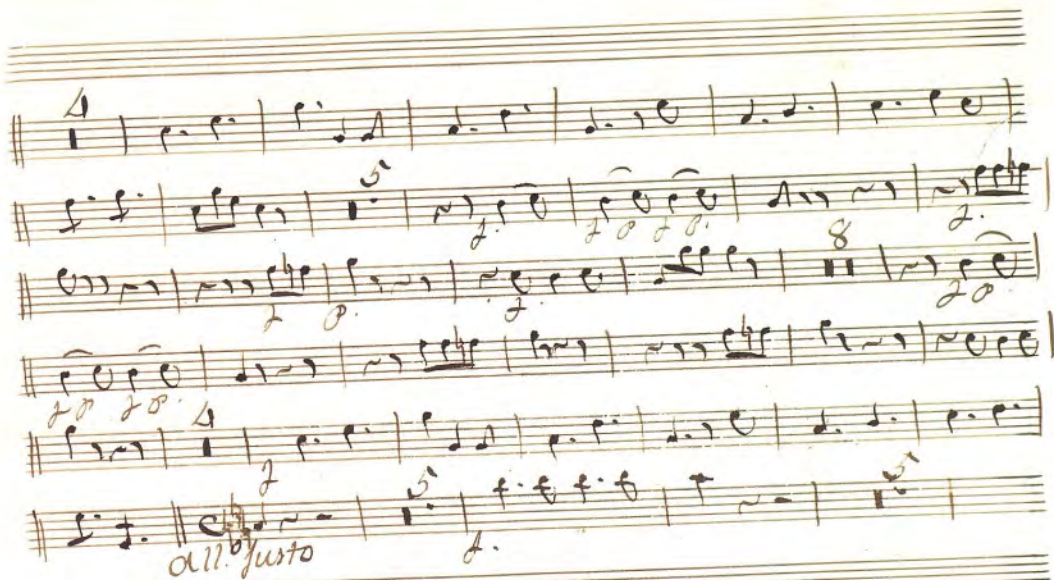 4
5
f. f p f p. f.
8
f p. f. f p
f p f p.
4
f
5 5
All.º Justo f.